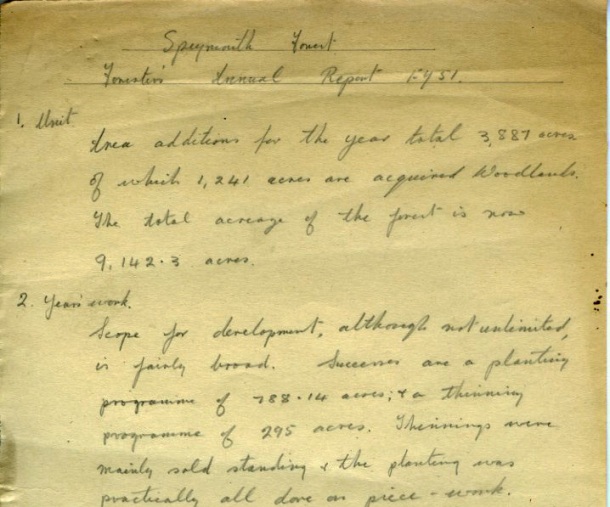 Speymouth Forest
Forester's Annual Report FY51.
1. Unit
Area additions for the year total 3,887 acres
of which 1,241 acres are acquired Woodlands.
The total acreage of the forest is now
9,142.3 acres.
2. Year's work.
Scope for development, although not unlimited,
is fairly broad. Successes are a planting
programme of 788.14 acres; & a thinning
programme of 295 acres. Thinnings were
mainly sold standing & the planting was
practically all done on piece-work.